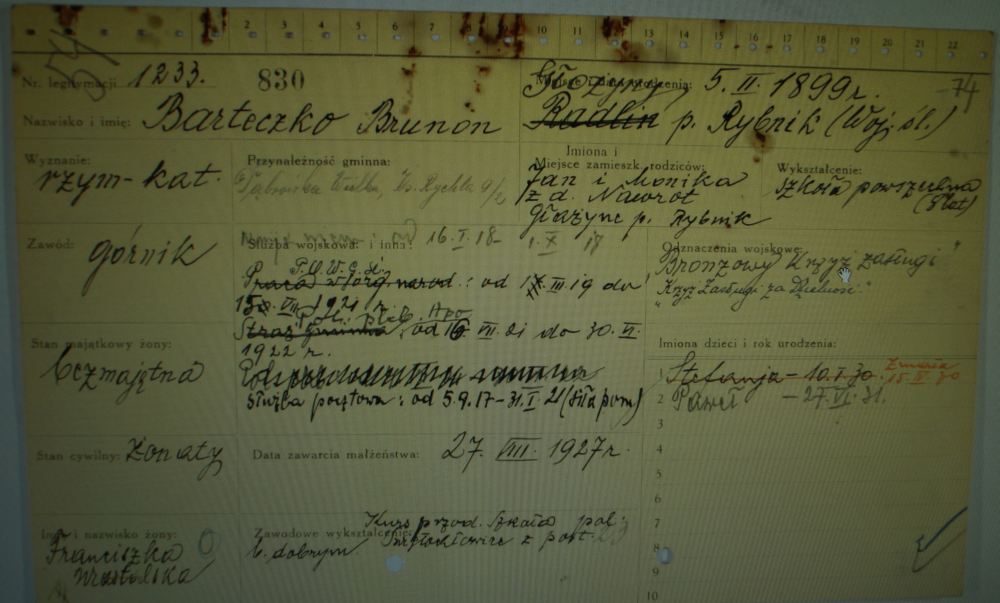 1 2 3 4 5 6 7 8 9 10 11 12 13 14 15 16 17 18 19 20 21 22
54
Nr. legitymacji 1233. 830
Miejsce i data urodzenia: 5. II. 1899 r. 74
Nazwisko i imię: Barteczko Brunon
Radlin p. Rybnik (Woj. śl.)
Wyznanie: rzym-kat.
Przynależność gminna:
Dąbrówka Wielka,
Imiona i
Miejsce zamieszk. rodziców:
Jan i Monika
z d. Nawrot
Głażyne p. Rybnik
Wykształcenie:
szkoła powszechna
(8 lat)
Zawód: górnik
Służba wojskowa: i inna: 16. I. 18 - 1. X 18
P.O.W.G.Śl
Praca w org. narod.: od III 19 do
VII 1921 r.
Straż gminna, Apo
od 16 VII. 21 do 30. VI.
1922 r.
służba pocztowa: od 5.9.17 - 31.I.21 (siła pom)
Odznaczenia wojskowe:
"Bronzowy Krzyż zasługi"
"Krzyż Zasługi za Dzielność."
Stan majątkowy żony:
bezmajętna
Imiona dzieci i rok urodzenia:
1 Stefanja - 10.I.30. Zmarła
15. 30
2 Paweł - 27.VI.31.
3
4
5
6
7
8
9
10
Stan cywilny: żonaty
Data zawarcia małżeństwa: 27. VIII. 1927 r.
Imię i nazwisko żony:
Franciszka
Zawodowe wykształcenie:
Kurs przod. Szkoła pol.
Świętochłowice z post.
b. dobrym